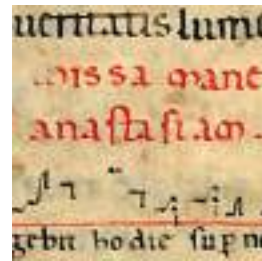 ueritatis lume
missa mane
ana sta si am
gebit hodie sup n